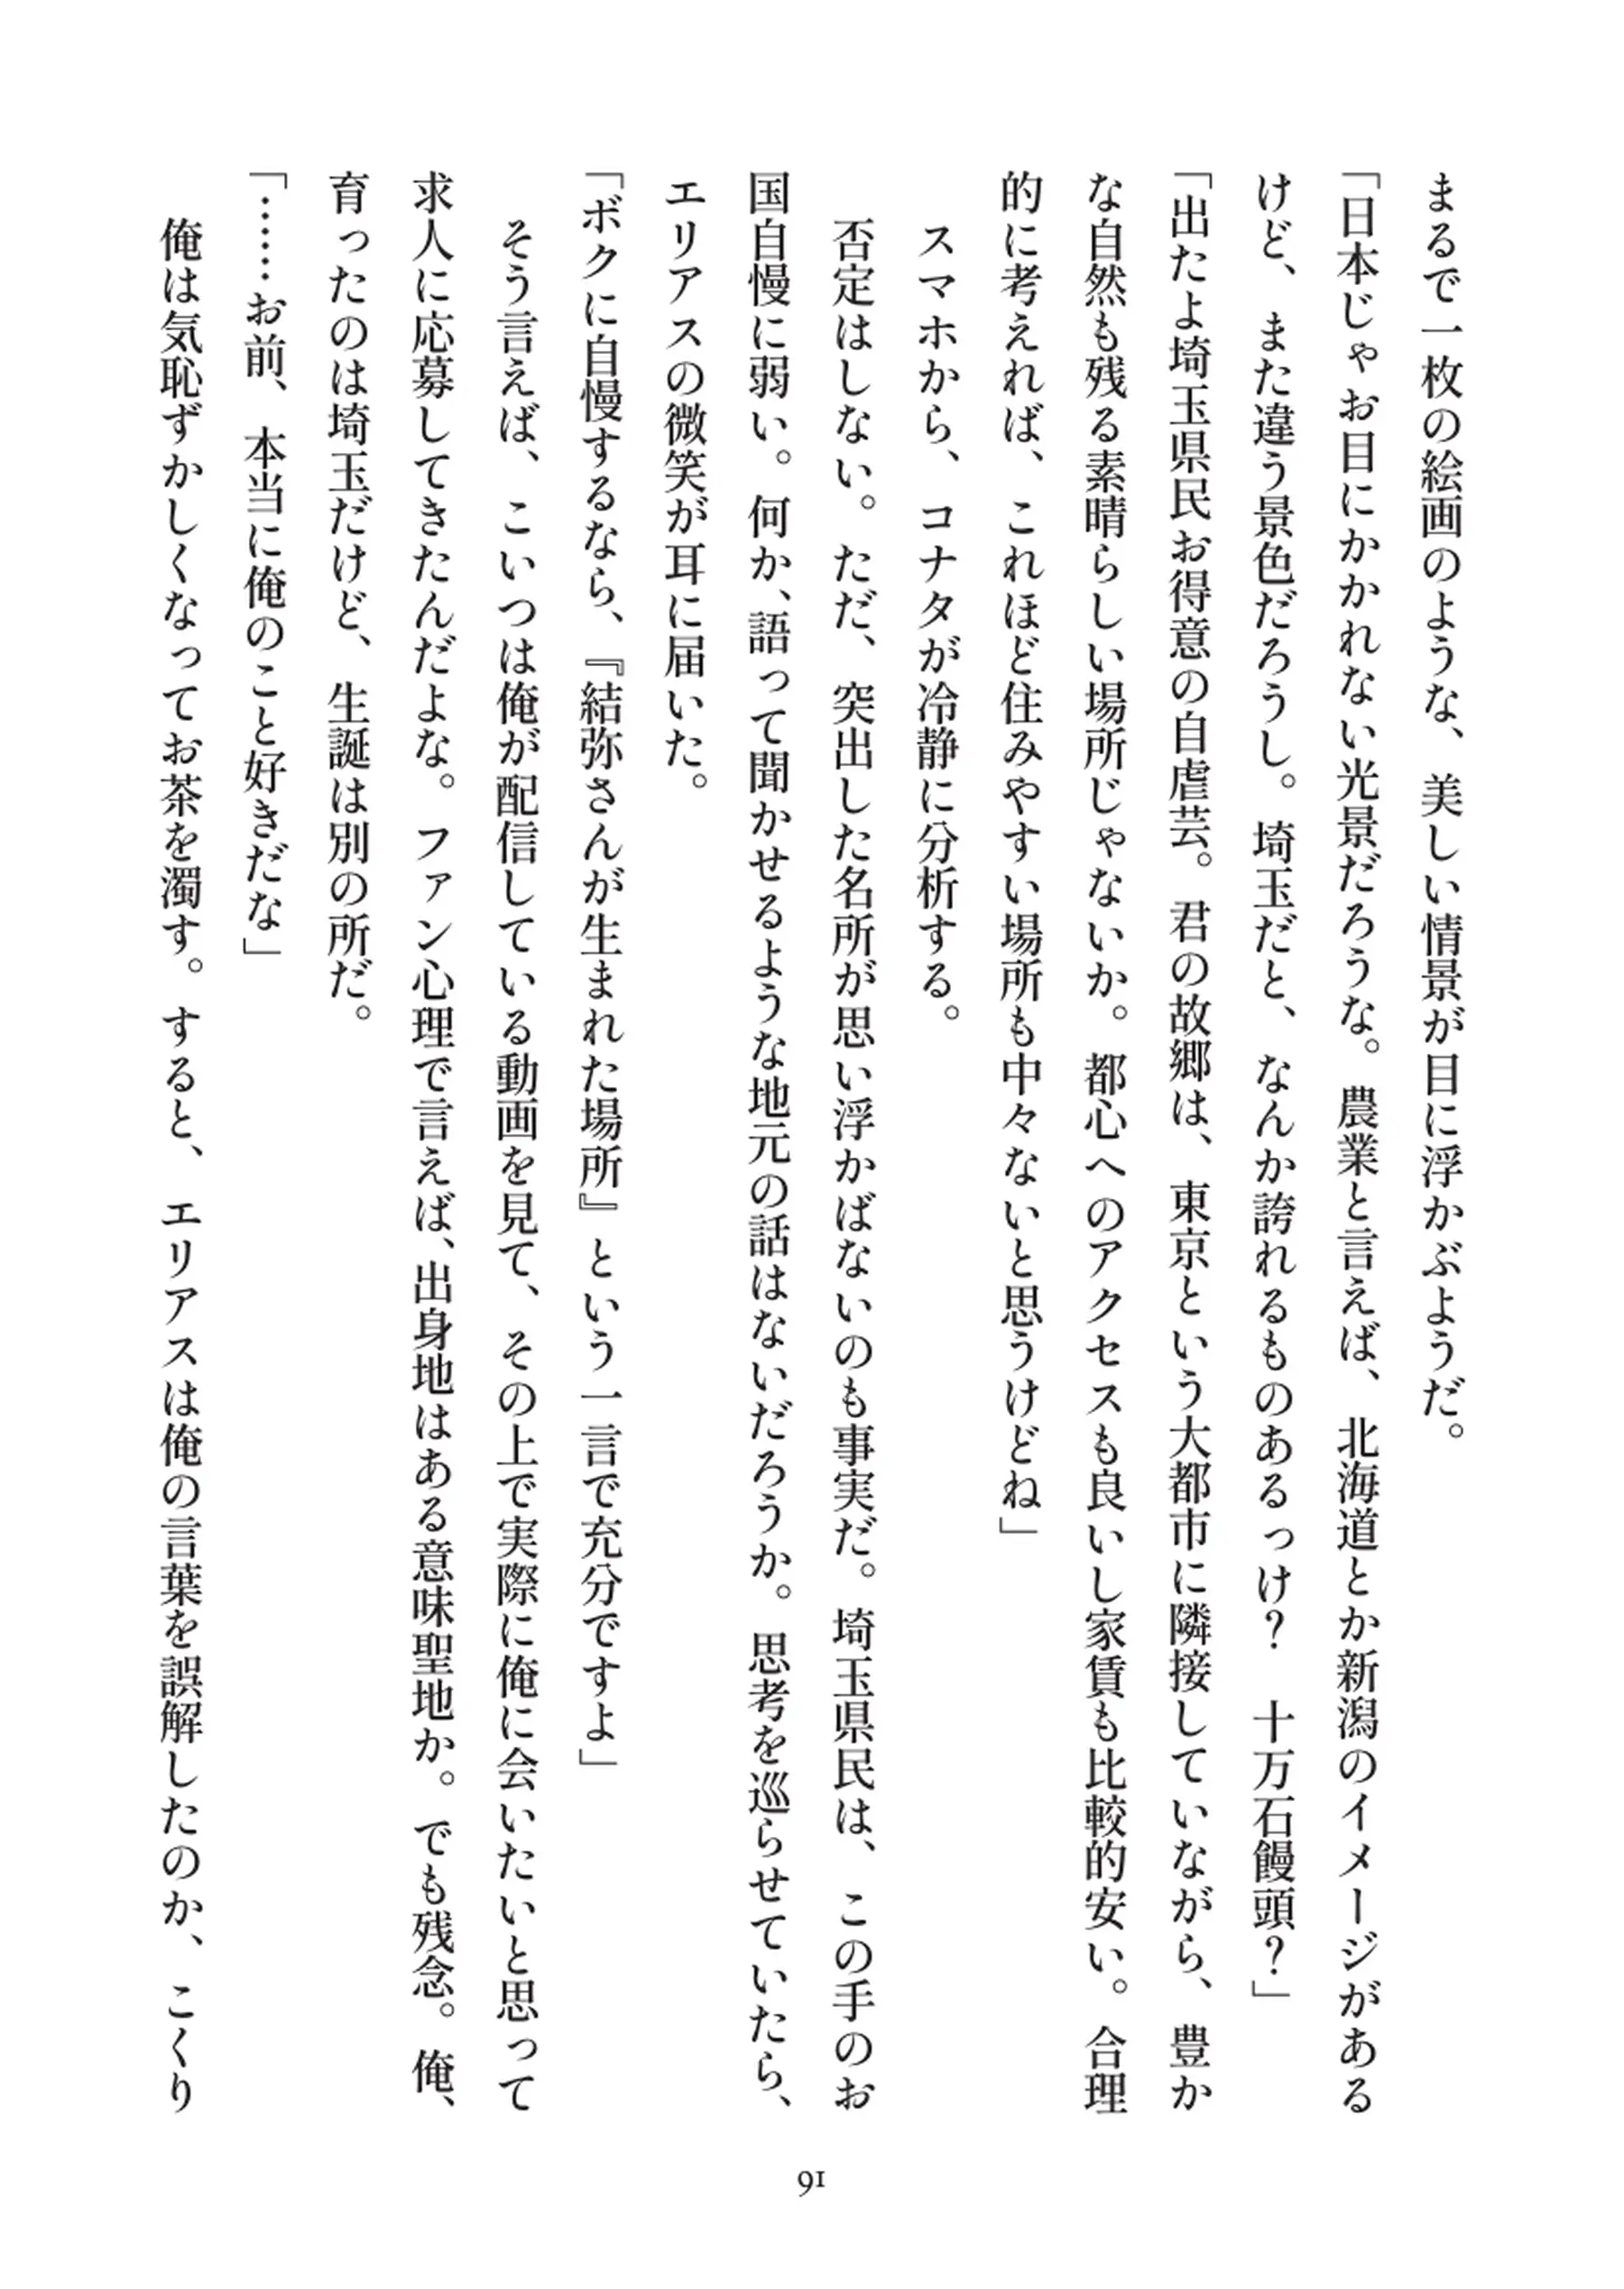 まるで一枚の絵画のような、美しい情景が目に浮かぶようだ。
「日本じゃお目にかかれない光景だろうな。農業と言えば、北海道とか新潟のイメージがある
けど、また違う景色だろうし。埼玉だと、なんか誇れるものあるっけ？　十万石饅頭？」
「出たよ埼玉県民お得意の自虐芸。君の故郷は、東京という大都市に隣接していながら、豊か
な自然も残る素晴らしい場所じゃないか。都心へのアクセスも良いし家賃も比較的安い。合理
的に考えれば、これほど住みやすい場所も中々ないと思うけどね」
　スマホから、コナタが冷静に分析する。
　否定はしない。ただ、突出した名所が思い浮かばないのも事実だ。埼玉県民は、この手のお
国自慢に弱い。何か、語って聞かせるような地元の話はないだろうか。思考を巡らせていたら、
エリアスの微笑が耳に届いた。
「ボクに自慢するなら、『結弥さんが生まれた場所』という一言で充分ですよ」
　そう言えば、こいつは俺が配信している動画を見て、その上で実際に俺に会いたいと思って
求人に応募してきたんだよな。ファン心理で言えば、出身地はある意味聖地か。でも残念。俺、
育ったのは埼玉だけど、生誕は別の所だ。
「……お前、本当に俺のこと好きだな」
　俺は気恥ずかしくなってお茶を濁す。すると、エリアスは俺の言葉を誤解したのか、こくり
91